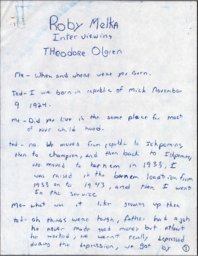 Roby Melka
Interviewing
Theodore Olgren
Me - When and where were you born.
Ted - I was born in republic of mich November
9 1924.
Me - Did you live in the same place for most
of your child hood.
Ted - no. We moved from republic to Ishpeming,
then to champion, and then back to Ishpeming
we moved to barnum in 1933, I
was raised in the barnum location from
1933 to 1943, and then I went
in the service.
Me - what was it like growing up then
Ted - oh things were tough, father had a job
he never made much money but atleast
he worked, we weren't really depressed
during the depression, we got by
1